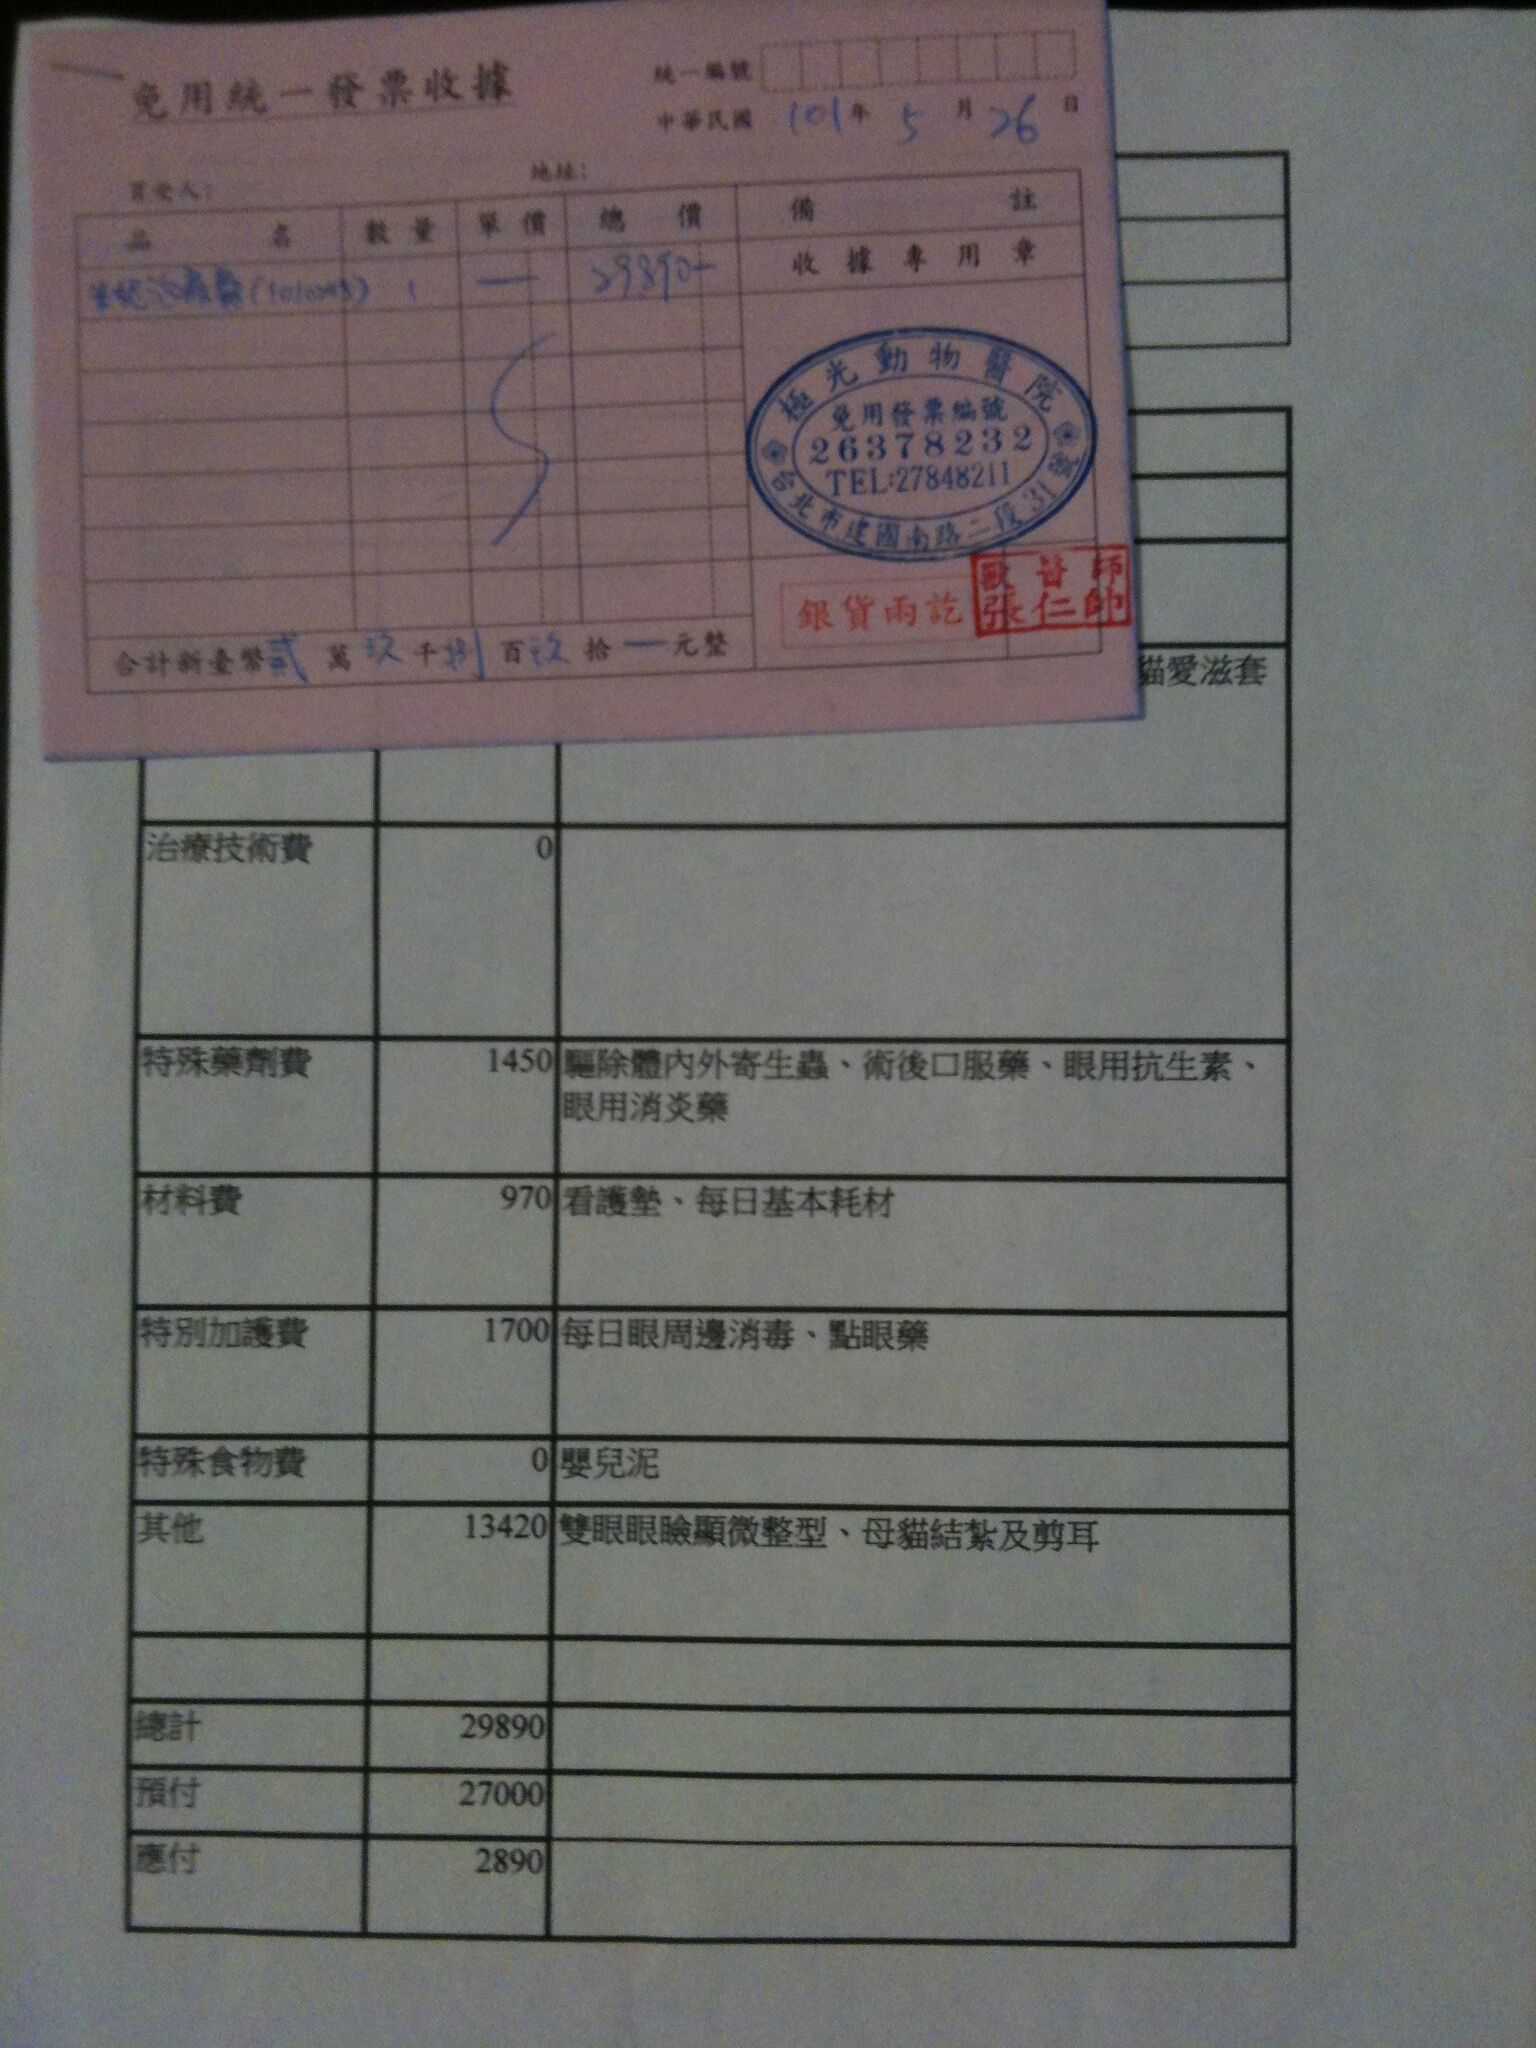 免用統一發票收據
統一編號
中華民國 101年 5 月 26 日
買受人： 地址：
品名 數量 單價 總價 備註
治療費 1 — 29890-
收據專用章
極光動物醫院
免用發票編號
26378232
TEL:27848211
台北市建國南路二段31號
銀貨兩訖
獸醫師
張仁帥
合計新臺幣 貳 萬 玖 千 捌 百 玖 拾 — 元整
貓愛滋套
治療技術費 0
特殊藥劑費 1450 驅除體內外寄生蟲、術後口服藥、眼用抗生素、
眼用消炎藥
材料費 970 看護墊、每日基本耗材
特別加護費 1700 每日眼周邊消毒、點眼藥
特殊食物費 0 嬰兒泥
其他 13420 雙眼眼瞼顯微整型、母貓結紮及剪耳
總計 29890
預付 27000
應付 2890